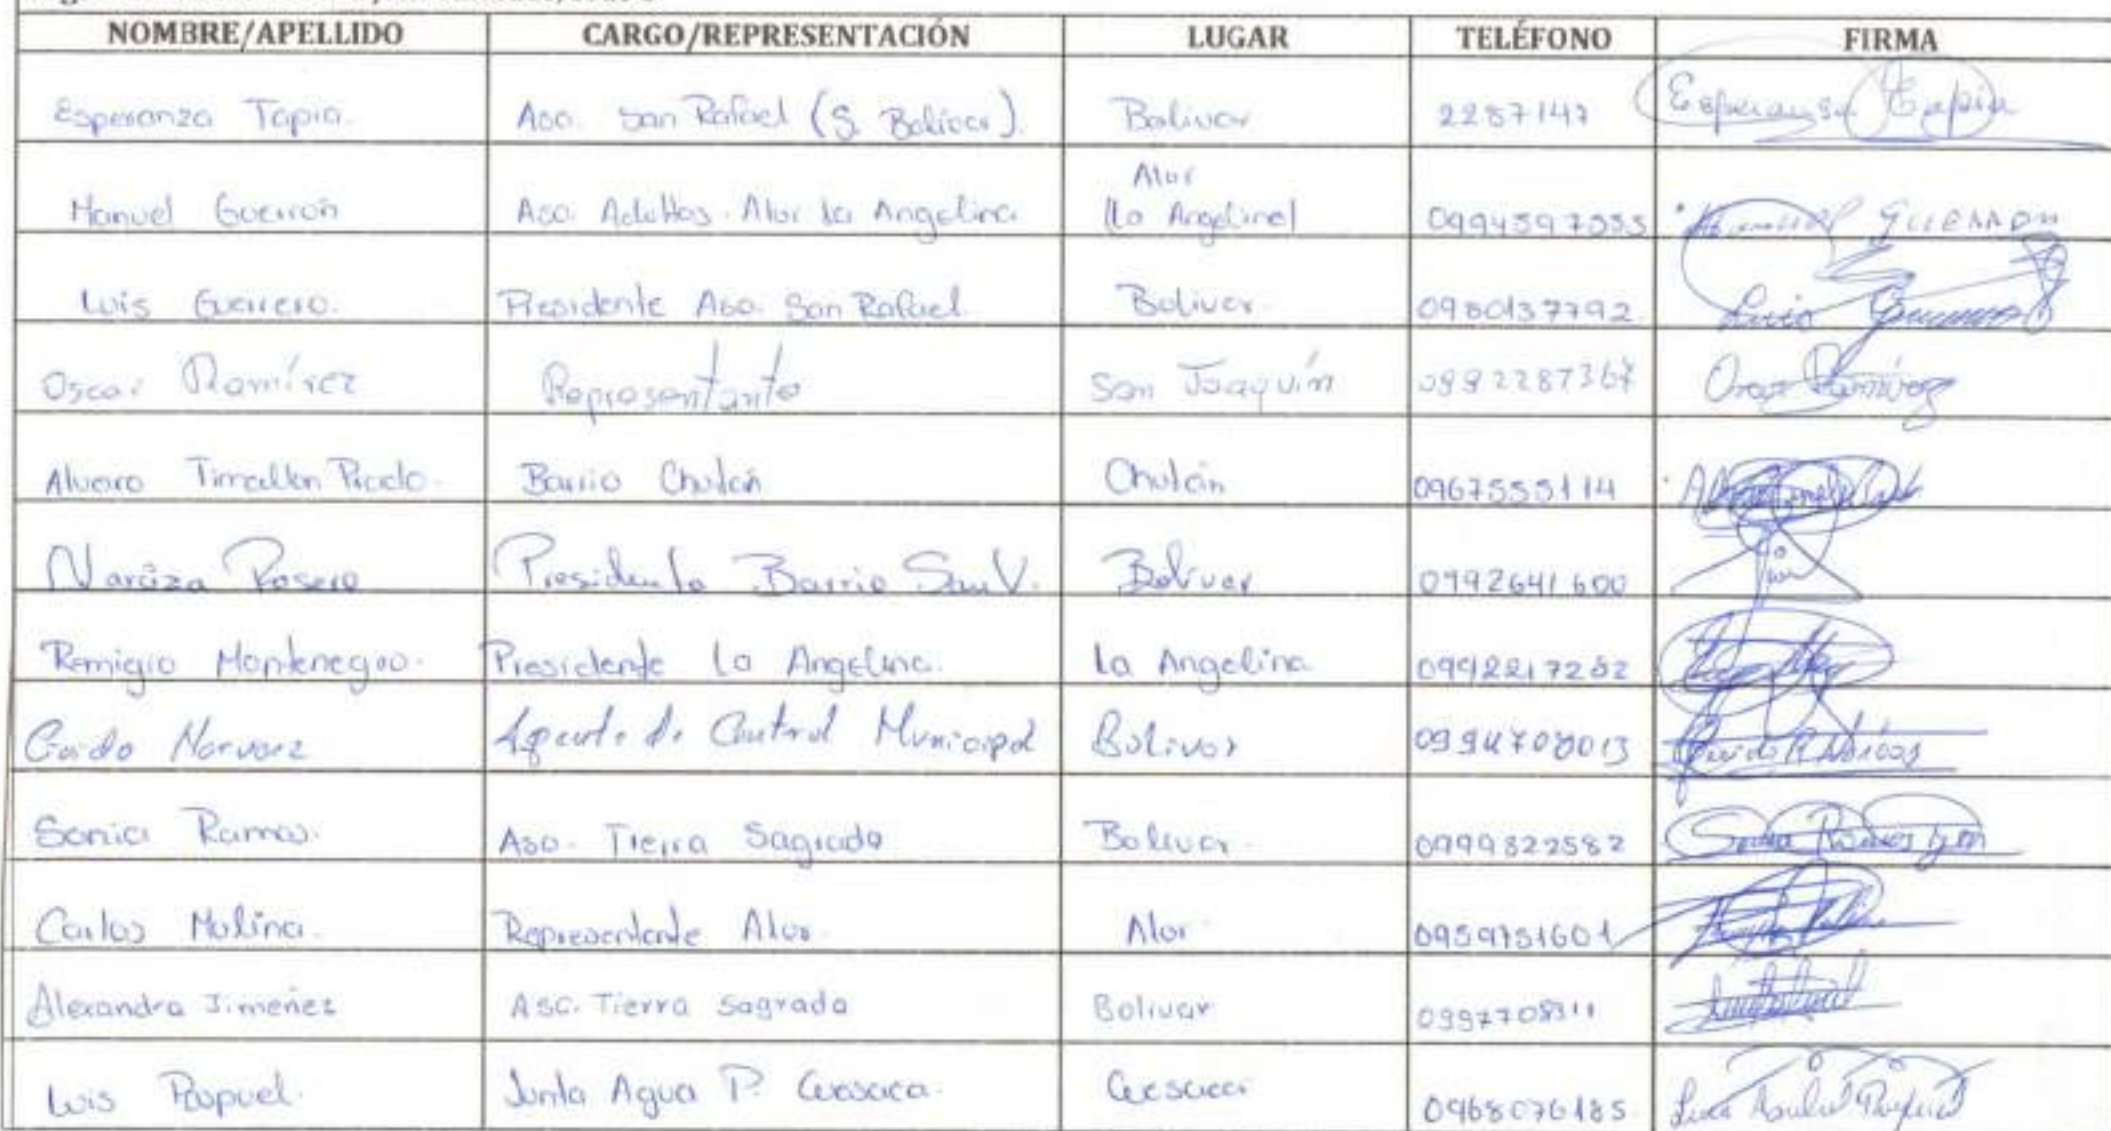 NOMBRE/APELLIDO CARGO/REPRESENTACIÓN LUGAR TELÉFONO FIRMA
Esperanza Tapia. Aso. San Rafael (S. Bolívar). Bolivar 2287147 Esperanza Tapia
Manuel Guerrón Aso. Adultos. Alor la Angelina Alor (La Angelina) 0994597555 Manuel GUERRON
Luis Guerrero. Presidente Aso. San Rafael. Bolivar. 0980137792 Luis
Oscar Ramírez Representante San Joaquín 0992287367 Oscar Ramírez
Alvaro Prado. Barrio Chután Chután 0967555114
Narciza Rosero Presidenta Barrio San V. Bolivar 0992641600
Remigio Montenegro. Presidente La Angelina. La Angelina 0992217252
Guido Narvaez Agente de Control Municipal Bolivar 0994708013
Sonia Ramos. Aso. Tierra Sagrada Bolivar. 0999822582 Sonia Ramos
Carlos Molina. Representante Alor. Alor. 0959751601
Alexandra Jimenez ASC. Tierra Sagrada Bolivar 0997708311
Luis Pupuel. Junta Agua P. Cuesaca. Cuesaca 0968076185 Luis